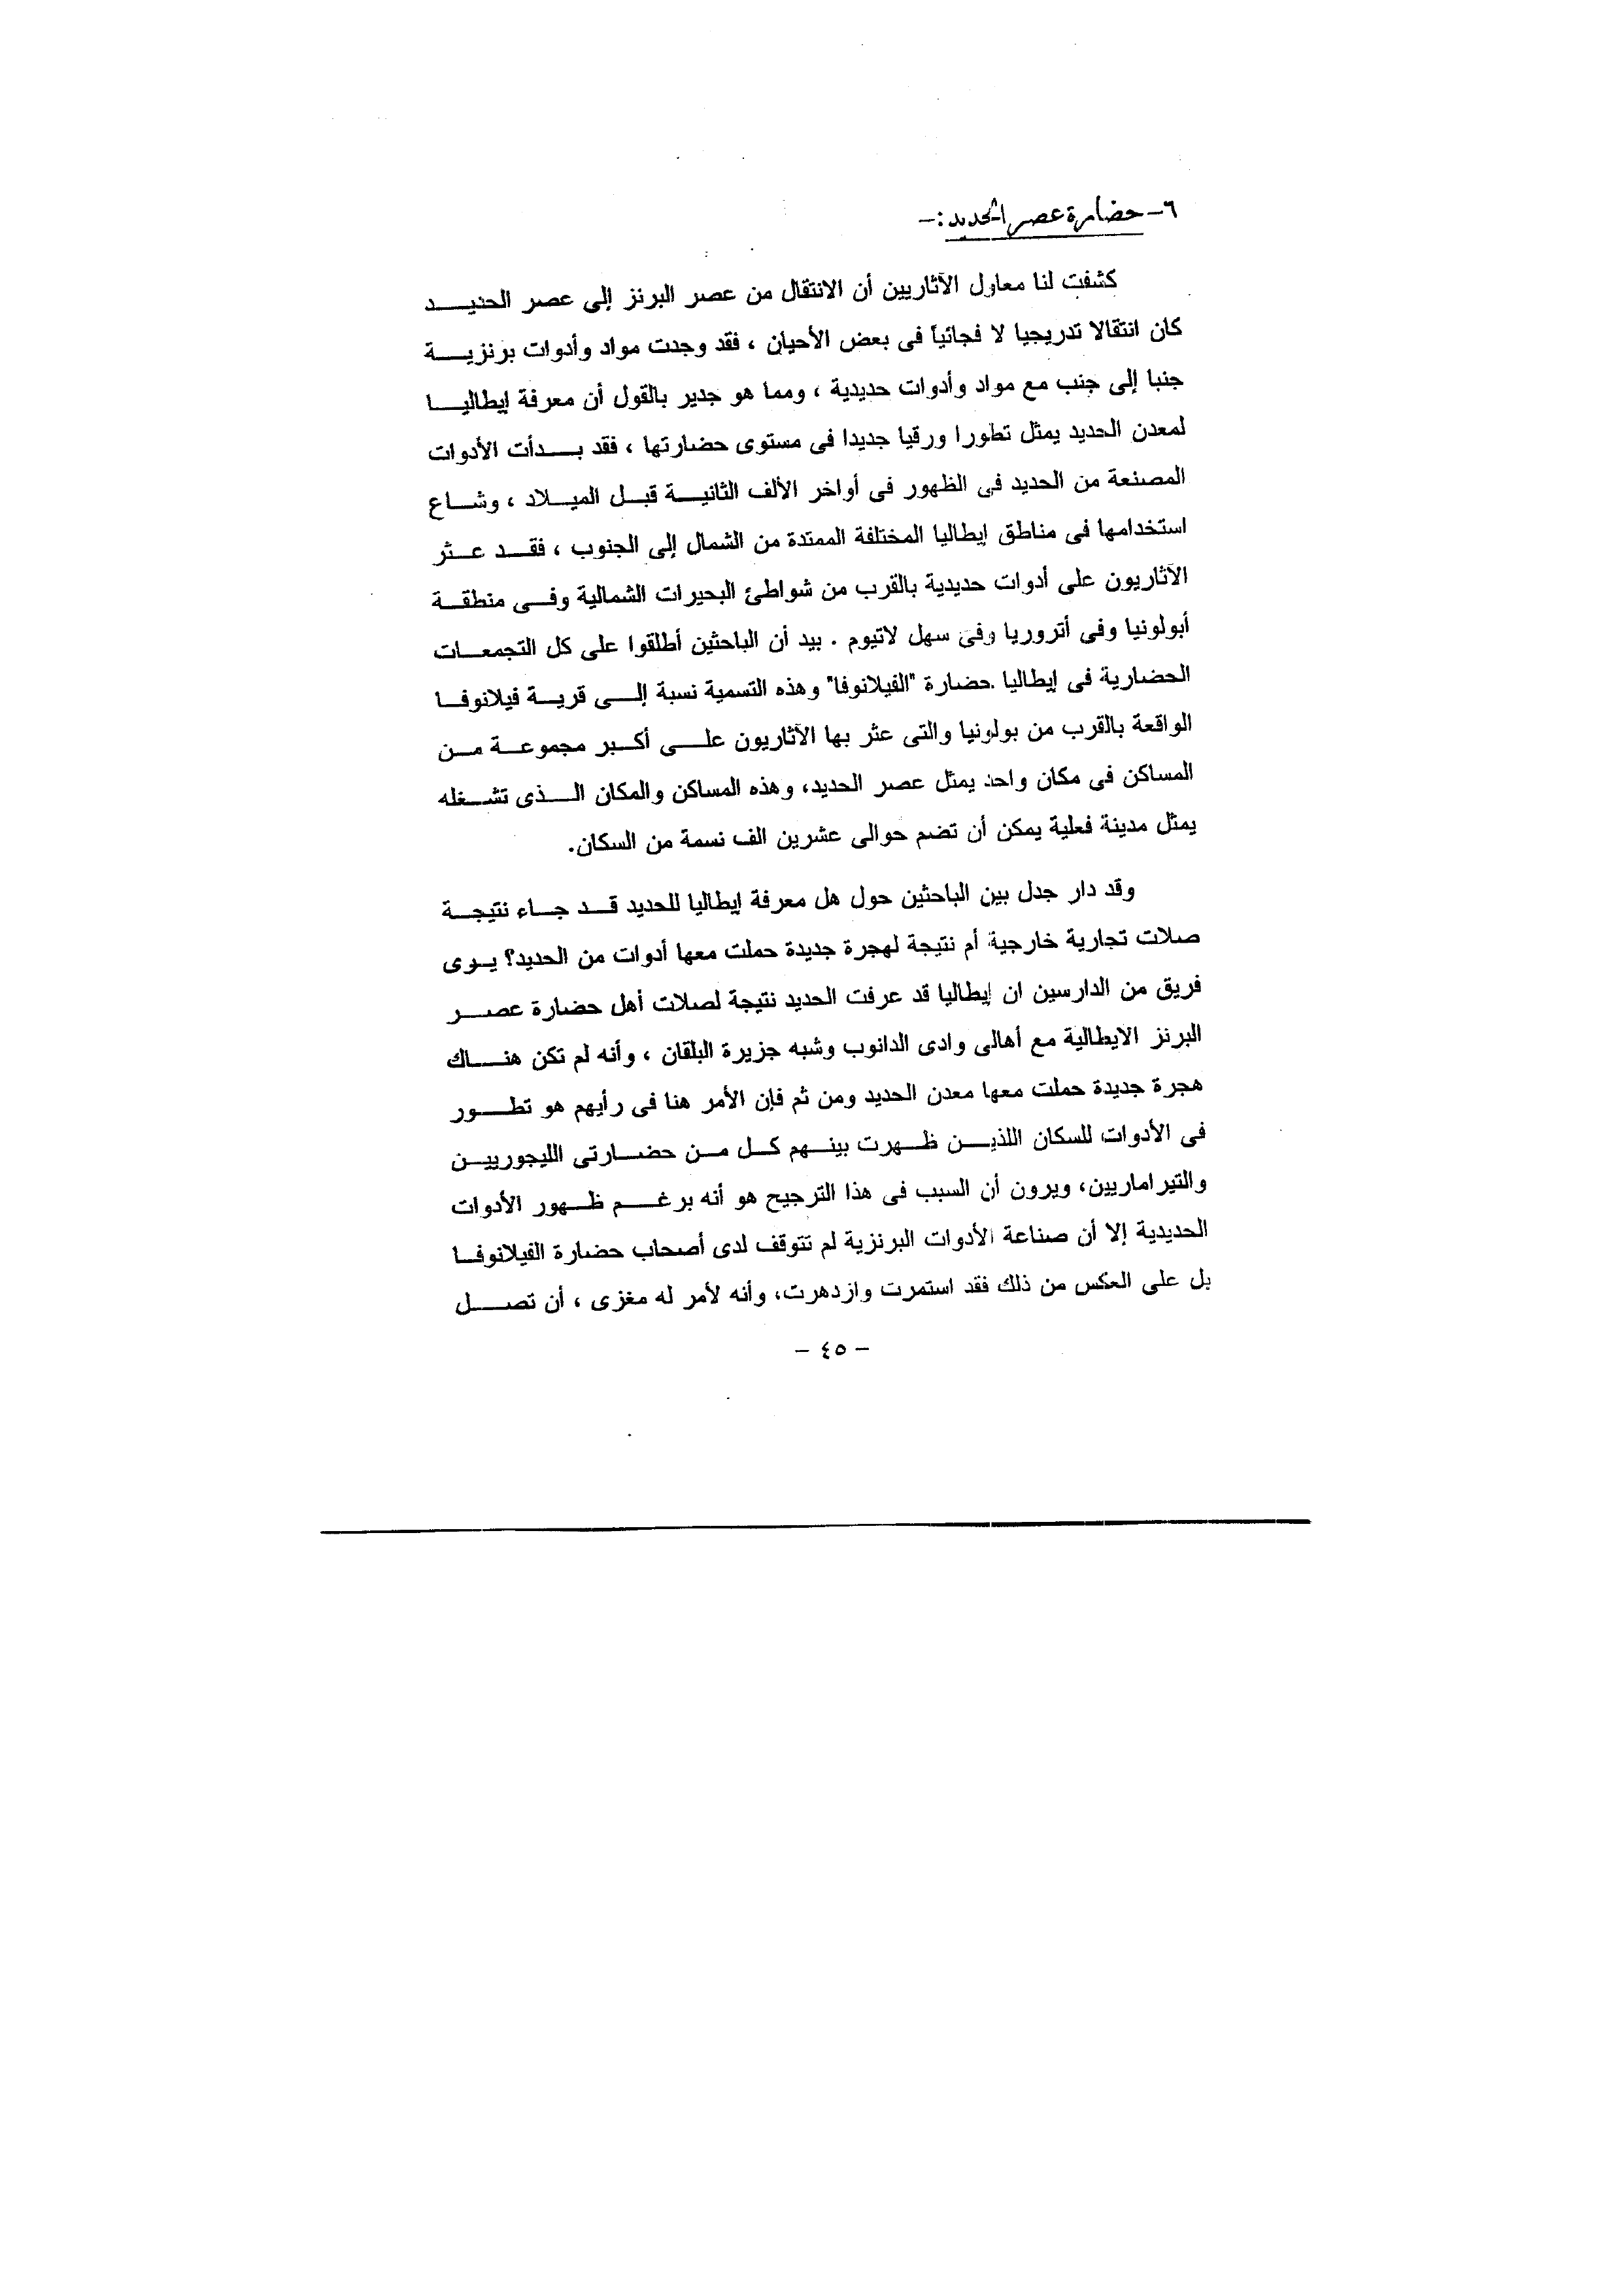 ٦- حضارة عصر الحديد :-
كشفت لنا معاول الآثاريين أن الانتقال من عصر البرنز إلى عصر الحديد
كان انتقالا تدريجيا لا فجائياً فى بعض الأحيان ، فقد وجدت مواد وأدوات برنزية
جنبا إلى جنب مع مواد وأدوات حديدية ، ومما هو جدير بالقول أن معرفة إيطاليا
لمعدن الحديد يمثل تطورا ورقيا جديدا فى مستوى حضارتها ، فقد بدأت الأدوات
المصنعة من الحديد فى الظهور فى أواخر الألف الثانية قبل الميلاد ، وشاع
استخدامها فى مناطق إيطاليا المختلفة الممتدة من الشمال إلى الجنوب ، فقد عثر
الآثاريون على أدوات حديدية بالقرب من شواطئ البحيرات الشمالية وفى منطقة
أبولونيا وفى أتروريا وفى سهل لاتيوم . بيد أن الباحثين أطلقوا على كل التجمعات
الحضارية فى إيطاليا حضارة "الفيلانوفا" وهذه التسمية نسبة إلى قرية فيلانوفا
الواقعة بالقرب من بولونيا والتى عثر بها الآثاريون على أكبر مجموعة من
المساكن فى مكان واحد يمثل عصر الحديد، وهذه المساكن والمكان الذى تشغله
يمثل مدينة فعلية يمكن أن تضم حوالى عشرين الف نسمة من السكان.
وقد دار جدل بين الباحثين حول هل معرفة إيطاليا للحديد قد جاء نتيجة
صلات تجارية خارجية أم نتيجة لهجرة جديدة حملت معها أدوات من الحديد؟ يوى
فريق من الدارسين ان إيطاليا قد عرفت الحديد نتيجة لصلات أهل حضارة عصر
البرنز الايطالية مع أهالى وادى الدانوب وشبه جزيرة البلقان ، وأنه لم تكن هناك
هجرة جديدة حملت معها معدن الحديد ومن ثم فإن الأمر هنا فى رأيهم هو تطور
فى الأدوات للسكان اللذين ظهرت بينهم كل من حضارتى الليجوريين
والتيراماريين، ويرون أن السبب فى هذا الترجيح هو أنه برغم ظهور الأدوات
الحديدية إلا أن صناعة الأدوات البرنزية لم تتوقف لدى أصحاب حضارة الفيلانوفا
بل على العكس من ذلك فقد استمرت وازدهرت، وأنه لأمر له مغزى ، أن تصل
- ٤٥ -